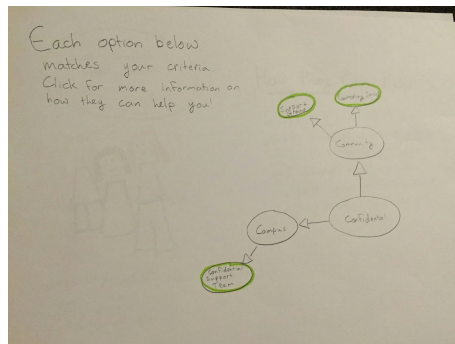 Each option below
matches your criteria.
Click for more information on
how they can help you!
Support
Community
Confidential
Campus
Confidential
Support
Team